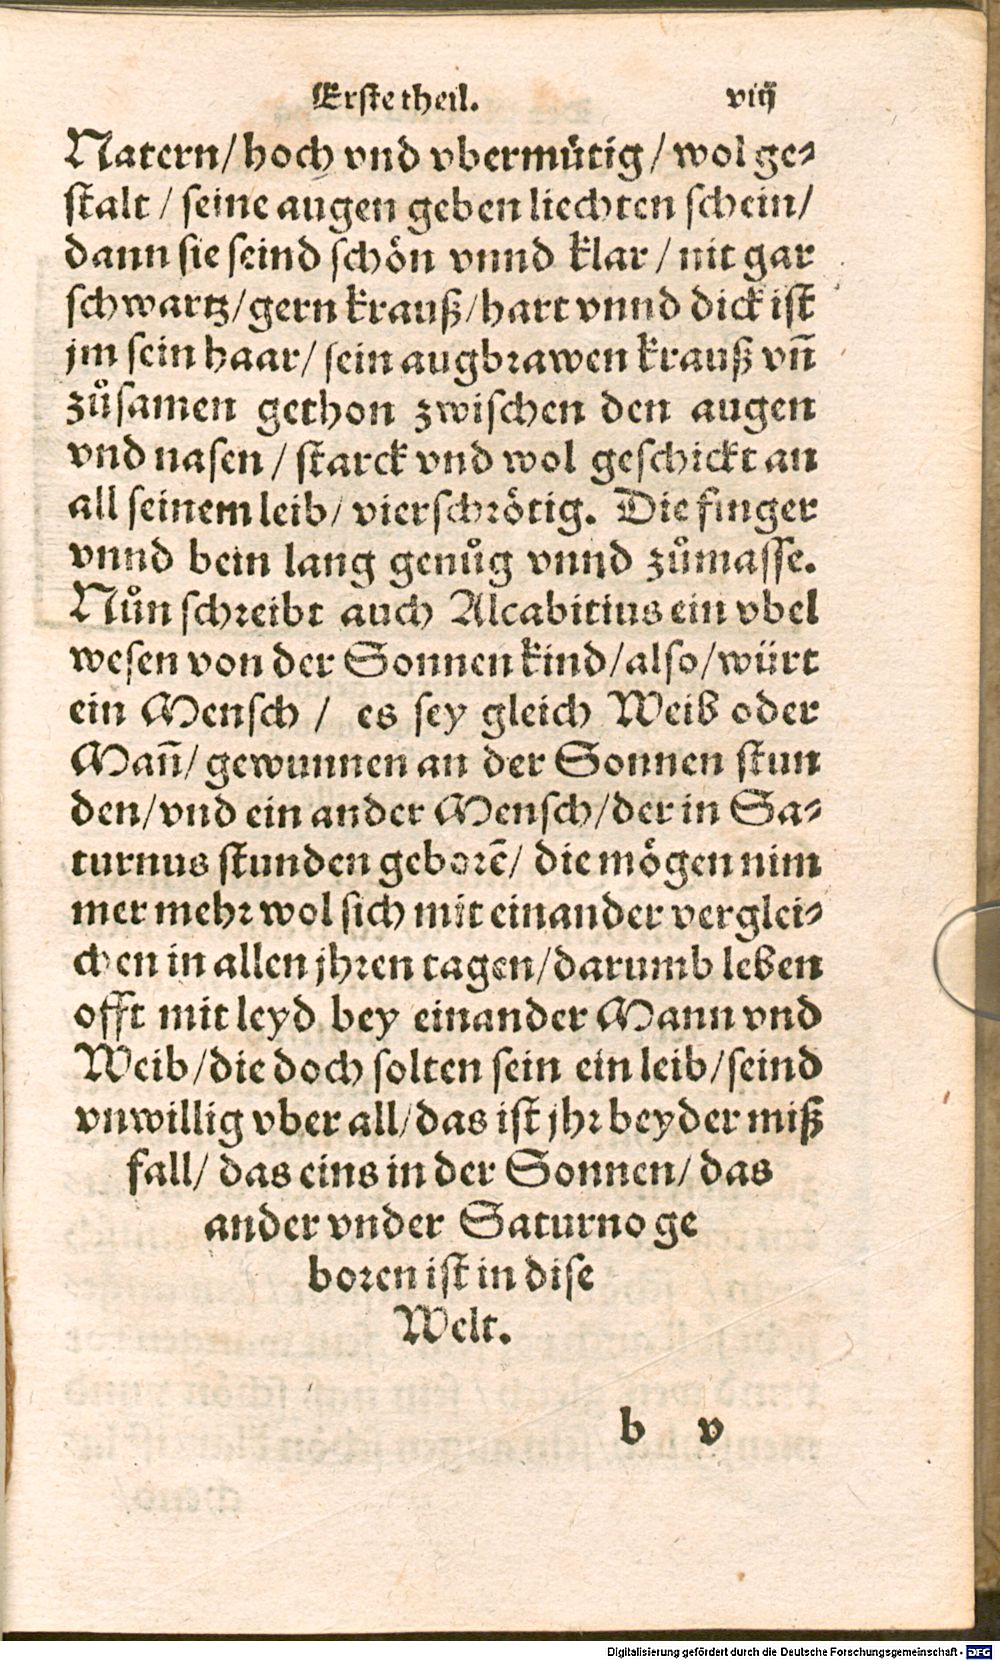 Erste theil. viij
Natern/ hoch vnd vbermuͤtig/ wol ge⸗
stalt / seine augen geben liechten schein/
dann sie seind schoͤn vnnd klar / nit gar
schwartz/ gern krauß/ hart vnnd dick ist
jm sein haar/ sein augbrawen krauß vñ
zuͦsamen gethon zwischen den augen
vnd nasen / starck vnd wol geschickt an
all seinem leib/ vierschroͤtig. Die finger
vnnd bein lang genuͦg vnnd zuͦmasse.
Nuͦn schreibt auch Alcabitius ein vbel
wesen von der Sonnen kind/ also/ würt
ein Mensch / es sey gleich Weib oder
Mañ/ gewunnen an der Sonnen stun
den/ vnd ein ander Mensch/ der in Sa⸗
turnus stunden geborẽ/ die moͤgen nim
mer mehr wol sich mit einander verglei⸗
chen in allen jhren tagen/ darumb leben
offt mit leyd bey einander Mann vnd
Weib/ die doch solten sein ein leib/ seind
vnwillig vber all/ das ist jhr beyder miß
fall/ das eins in der Sonnen/ das
ander vnder Saturno ge
boren ist in dise
Welt.
b v
Digitalisierung gefördert durch die Deutsche Forschungsgemeinschaft - DFG